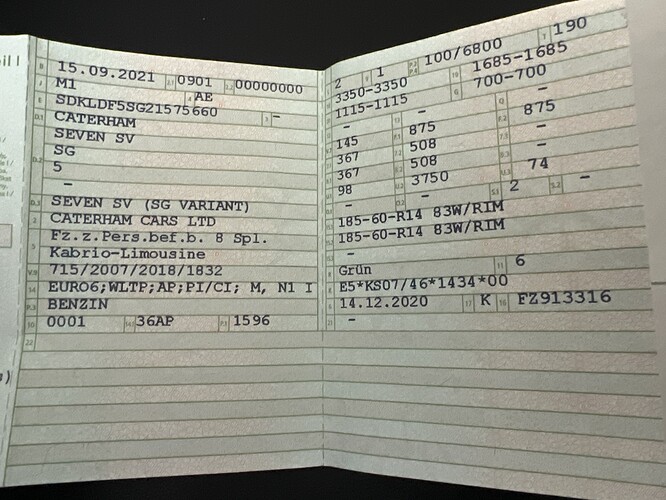 15.09.2021 2.1 0901 2.2 00000000
M1 4 AE
SDKLDF5SG21575660 3 -
CATERHAM
SEVEN SV
SG
5
-
SEVEN SV (SG VARIANT)
CATERHAM CARS LTD
Fz.z.Pers.bef.b. 8 Spl.
Kabrio-Limousine
715/2007/2018/1832
EURO6;WLTP;AP;PI/CI; M, N1 I
BENZIN
0001 36AP 1596
22
2 1 100/6800 T 190
3350-3350 1685-1685
1115-1115 G 700-700
- - -
145 875 875
367 508 -
367 508 -
98 3750 74
- - 2 -
185-60-R14 83W/RIM
185-60-R14 83W/RIM
-
Grün 11 6
E5*KS07/46*1434*00
14.12.2020 17 K 16 FZ913316
21 -